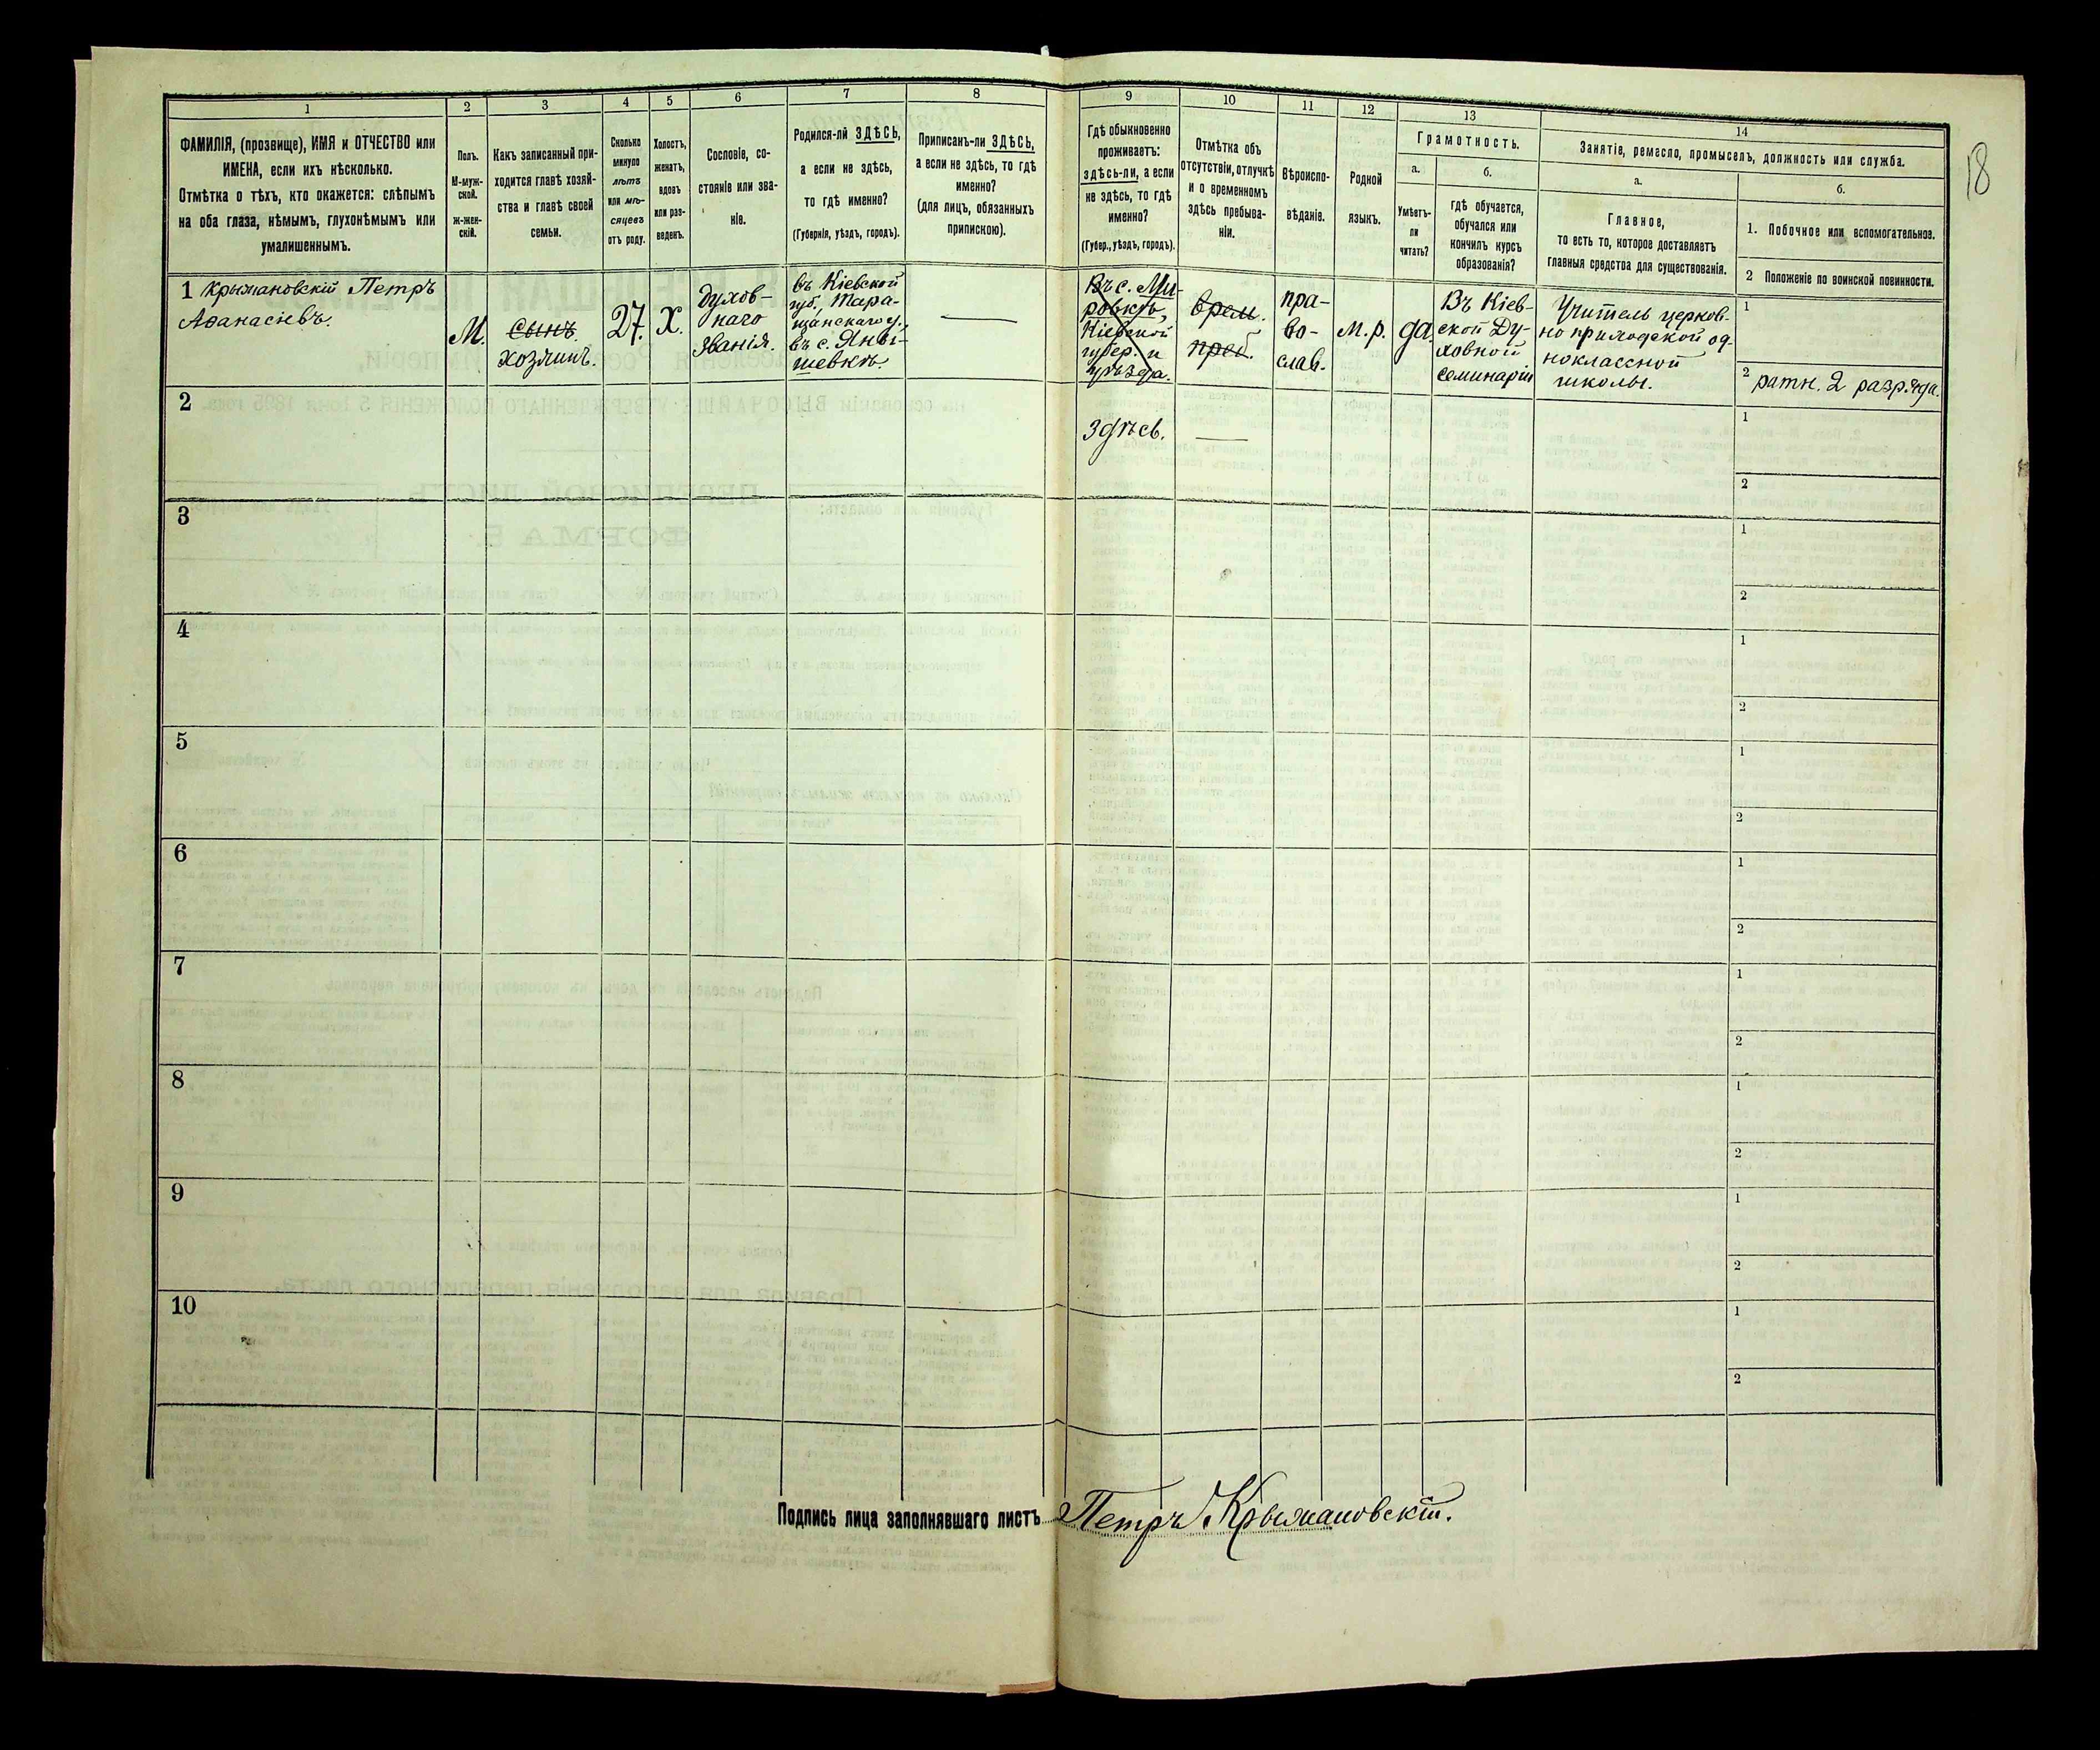 18
1
2
3
4
5
6
7
8
9
10
11
12
13
14
ФАМИЛІЯ, (прозвище), ИМЯ и ОТЧЕСТВО или
ИМЕНА, если ихъ нѣсколько.
Отмѣтка о тѣхъ, кто окажется: слѣпымъ
на оба глаза, нѣмымъ, глухонѣмымъ или
умалишеннымъ.
Полъ.
М-муж-
ской.
ж-жен-
скій.
Какъ записанный при-
ходится главѣ хозяй-
ства и главѣ своей
семьи.
Сколько
минуло
лѣтъ
или мѣ-
сяцевъ
отъ роду.
Холостъ,
женатъ,
вдовъ
или раз-
веденъ.
Сословіе, со-
стояніе или зва-
ніе.
Родился-ли ЗДѢСЬ,
а если не здѣсь,
то гдѣ именно?
(Губернія, уѣздъ, городъ).
Приписанъ-ли ЗДѢСЬ,
а если не здѣсь, то гдѣ
именно?
(для лицъ, обязанныхъ
припискою).
Гдѣ обыкновенно
проживаетъ:
здѣсь-ли, а если
не здѣсь, то гдѣ
именно?
(Губер., уѣздъ, городъ).
Отмѣтка объ
отсутствіи, отлучкѣ
и о временномъ
здѣсь пребыва-
ніи.
Вѣроиспо-
вѣданіе.
Родной
языкъ.
Грамотность.
а.
Умѣетъ-
ли
читать?
б.
гдѣ обучается,
обучался или
кончилъ курсъ
образованія?
Занятіе, ремесло, промыселъ, должность или служба.
а.
Главное,
то есть то, которое доставляетъ
главныя средства для существованія.
б.
1. Побочное или вспомогательное.
2 Положеніе по воинской повинности.
1 Крыжановскій Петръ
Аѳанасіевъ.
М.
сынъ.
хозяинъ.
27.
Х.
Духов-
наго
званія.
въ Кіевской
губ., Тара-
щанскаго у.,
въ с. Яны-
шевкѣ.
Въ с. Ми-
ровкѣ,
Кіевской
губер. и
уѣзда.
здѣсь.
врем.
преб.
пра-
во-
слав.
м. р.
да.
Въ Кіев-
ской Ду-
ховной
семинаріи
Учитель церков-
но приходской од-
ноклассной
школы.
1
2 ратн. 2 разряда.
2
1
2
3
1
2
4
1
2
5
1
2
6
1
2
7
1
2
8
1
2
9
1
2
10
1
2
Подпись лица заполнявшаго листъ Петръ Крыжановскій.